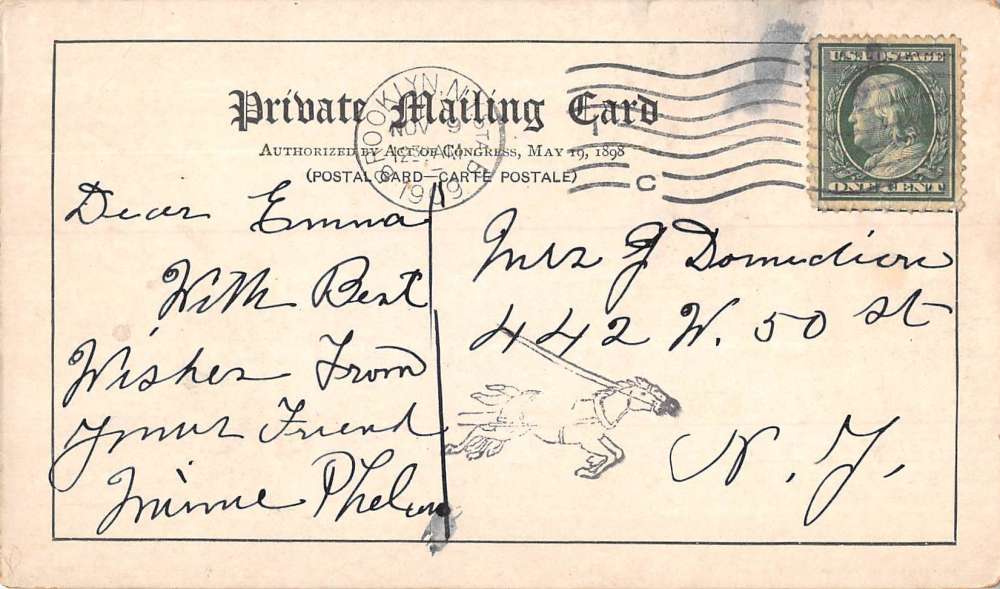 U.S. POSTAGE
ONE CENT
Private Mailing Card
Authorized by Act of Congress, May 19, 1898
(POSTAL CARD—CARTE POSTALE)
BROOKLYN, N.Y. STA. B
NOV 9
1909
C
Dear Emma
With Best
Wishes From
Your Friend
Minnie Phelan
Mrs J Domedion
442 W. 50 St
N. Y.